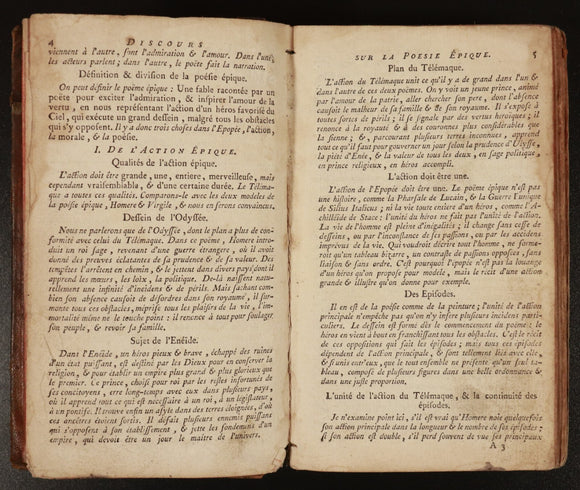 4 DISCOURS
viennent à l'autre, sont l'admiration & l'amour. Dans l'une,
les acteurs parlent; dans l'autre, le poëte fait la narration.
Définition & division de la poésie épique.
On peut définir le poëme épique : Une fable racontée par un
poëte pour exciter l'admiration, & inspirer l'amour de la
vertu, en nous représentant l'action d'un héros favorisé du
Ciel, qui exécute un grand dessein, malgré tous les obstacles
qui s'y opposent. Il y a donc trois choses dans l'Epopée, l'action,
la morale, & la poësie.
I. DE L'ACTION ÉPIQUE.
Qualités de l'action épique.
L'action doit être grande, une, entiere, merveilleuse, mais
cependant vraisemblable, & d'une certaine durée. Le Téléma-
que a toutes ces qualités. Comparons-le avec les deux modeles de
la poësie épique, Homere & Virgile, & nous en serons convaincus.
Dessein de l'Odyssée.
Nous ne parlerons que de l'Odyssée, dont le plan a plus de con-
formité avec celui du Télémaque. Dans ce poëme, Homere intro-
duit un roi sage, revenant d'une guerre étrangere, où il avoit
donné des preuves éclatantes de sa prudence & de sa valeur. Des
tempêtes l'arrêtent en chemin, & le jettent dans divers pays dont il
apprend les mœurs, les loix, la politique. De-là naissent natu-
rellement une infinité d'incidens & de périls. Mais sachant com-
bien son absence causoit de désordres dans son royaume, il sur-
monte tous ces obstacles, méprise tous les plaisirs de la vie, l'im-
mortalité même ne le touche point : il renonce à tout pour soulager
son peuple, & revoir sa famille.
Sujet de l'Enéïde.
Dans l'Enéïde, un héros pieux & brave, échappé des ruines
d'un état puissant, est destiné par les Dieux pour en conserver la
religion, & pour établir un empire plus grand & plus glorieux que
le premier. Ce prince, choisi pour roi par les restes infortunés de
ses concitoyens, erre long-temps avec eux dans plusieurs pays,
où il apprend tout ce qui est nécessaire à un roi, à un législateur,
à un pontife. Il trouve enfin un asyle dans des terres éloignées, d'où
ses ancêtres étoient sortis. Il défait plusieurs ennemis puissans
qui s'opposent à son établissement, & jette les fondemens d'un
empire, qui devoit être un jour le maître de l'univers.
SUR LA POESIE ÉPIQUE. 5
Plan du Télémaque.
L'action du Télémaque unit ce qu'il y a de grand dans l'un &
dans l'autre de ces deux poëmes. On y voit un jeune prince, animé
par l'amour de la patrie, aller chercher son pere, dont l'absence
causoit le malheur de sa famille & de son royaume. Il s'expose à
toutes sortes de périls; il se signale par des vertus héroïques; il
renonce à la royauté & à des couronnes plus considérables que
la sienne; &, parcourant plusieurs terres inconnues, apprend
tout ce qu'il faut pour gouverner un jour selon la prudence d'Ulysse,
la piété d'Enée, & la valeur de tous les deux, en sage politique,
en prince religieux, en héros accompli.
L'action doit être une.
L'action de l'Epopée doit être une. Le poëme épique n'est pas
une histoire, comme la Pharsale de Lucain, & la Guerre Punique
de Silius Italicus; ni la vie toute entiere d'un héros, comme l'A-
chilléïde de Stace : l'unité du héros ne fait pas l'unité de l'action.
La vie de l'homme est pleine d'inégalités; il change sans cesse de
desseins, ou par l'inconstance de ses passions, ou par les accidens
imprévus de la vie. Qui voudroit décrire tout l'homme, ne forme-
roit qu'un tableau bizarre, un contraste de passions opposées, sans
liaison & sans ordre. C'est pourquoi l'épopée n'est pas la louange
d'un héros qu'on propose pour modele, mais le récit d'une action
grande & illustre qu'on donne pour exemple.
Des Episodes.
Il en est de la poësie comme de la peinture; l'unité de l'action
principale n'empêche pas qu'on n'y insere plusieurs incidens parti-
culiers. Le dessein est formé dès le commencement du poëme; le
héros en vient à bout en franchissant tous les obstacles. C'est le récit
de ces oppositions qui fait les épisodes; mais tous ces épisodes
dépendent de l'action principale, & sont tellement liés avec elle,
& si unis entr'eux, que le tout ensemble ne présente qu'un seul ta-
bleau, composé de plusieurs figures dans une belle ordonnance &
dans une juste proportion.
L'unité de l'action du Télémaque, & la continuité des
épisodes.
Je n'examine point ici, s'il est vrai qu'Homere noie quelquefois
son action principale dans la longueur & le nombre de ses épisodes;
si son action est double, s'il perd souvent de vue ses principaux
A 3